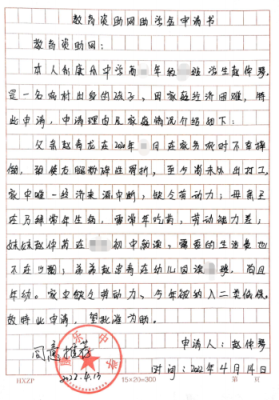 教育资助网助学金申请书
教育资助网：
本人系康乐中学高 年级 班学生赵仲琴，
是一名农村出身的孩子，因家庭经济困难，特
此申请，申请理由及家庭情况介绍如下：
父亲赵 在2022年 月在家务农时不幸摔
倒，颈椎 粉碎性骨折，至今尚未外出打工，
家中唯一经济来源中断，缺乏劳动力；母亲
在 常年生病，需常年吃药，劳动能力差；
妹妹赵仲 在 初中就读，需要的生活费也
不在少数；弟弟赵 在幼儿园读 ，尚且
年幼。家中缺乏劳动力，今年被纳入二类低保，
故特此申请，望批准为盼。
申请人：赵仲琴
时间：2022年4月14日
同意推荐
2022.4.13
乐中学
HXZP 15×20=300 第 页